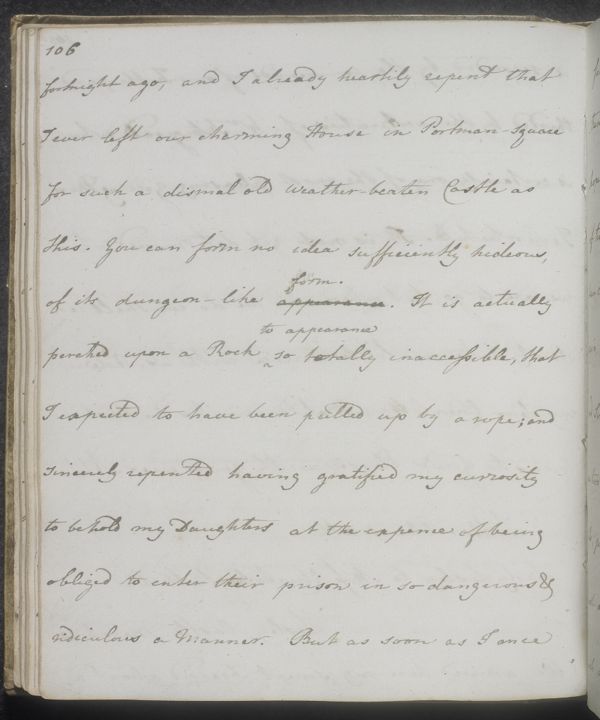 106
fortnight ago, and I already heartily repent that
I ever left our charming House in Portman-Square
for such a dismal old Weather-beaten Castle as
this. You can form no idea sufficiently hideous,
form.
of its dungeon-like appearance. It is actually
to appearance
perched upon a Rock so totally inaccessible, that
I expected to have been pulled up by a rope; and
sincerely repented having gratified my curiosity
to behold my Daughters at the expence of being
obliged to enter their prison in so dangerous &
ridiculous a Manner. But as soon as I once